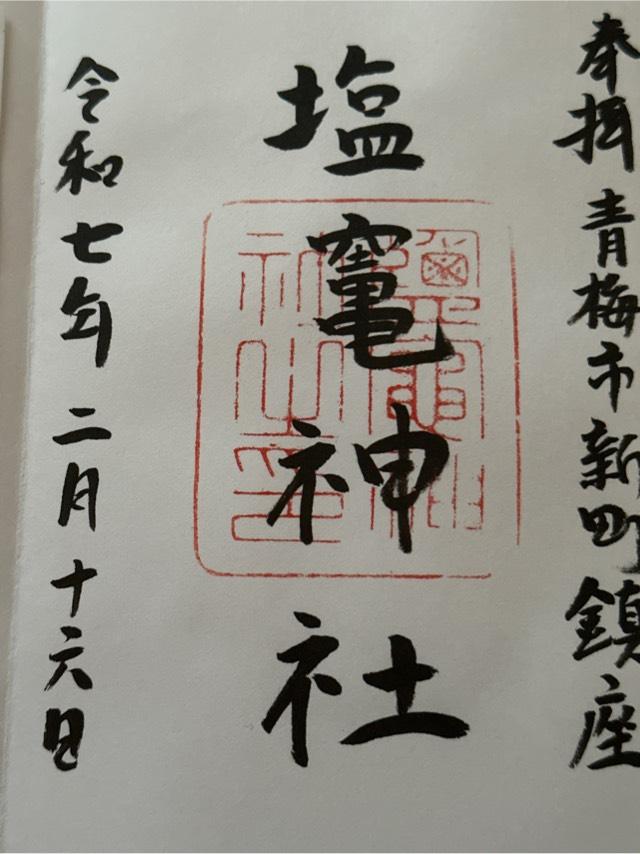 奉拝 青梅市新町鎮座
塩竃神社
令和七年二月十六日